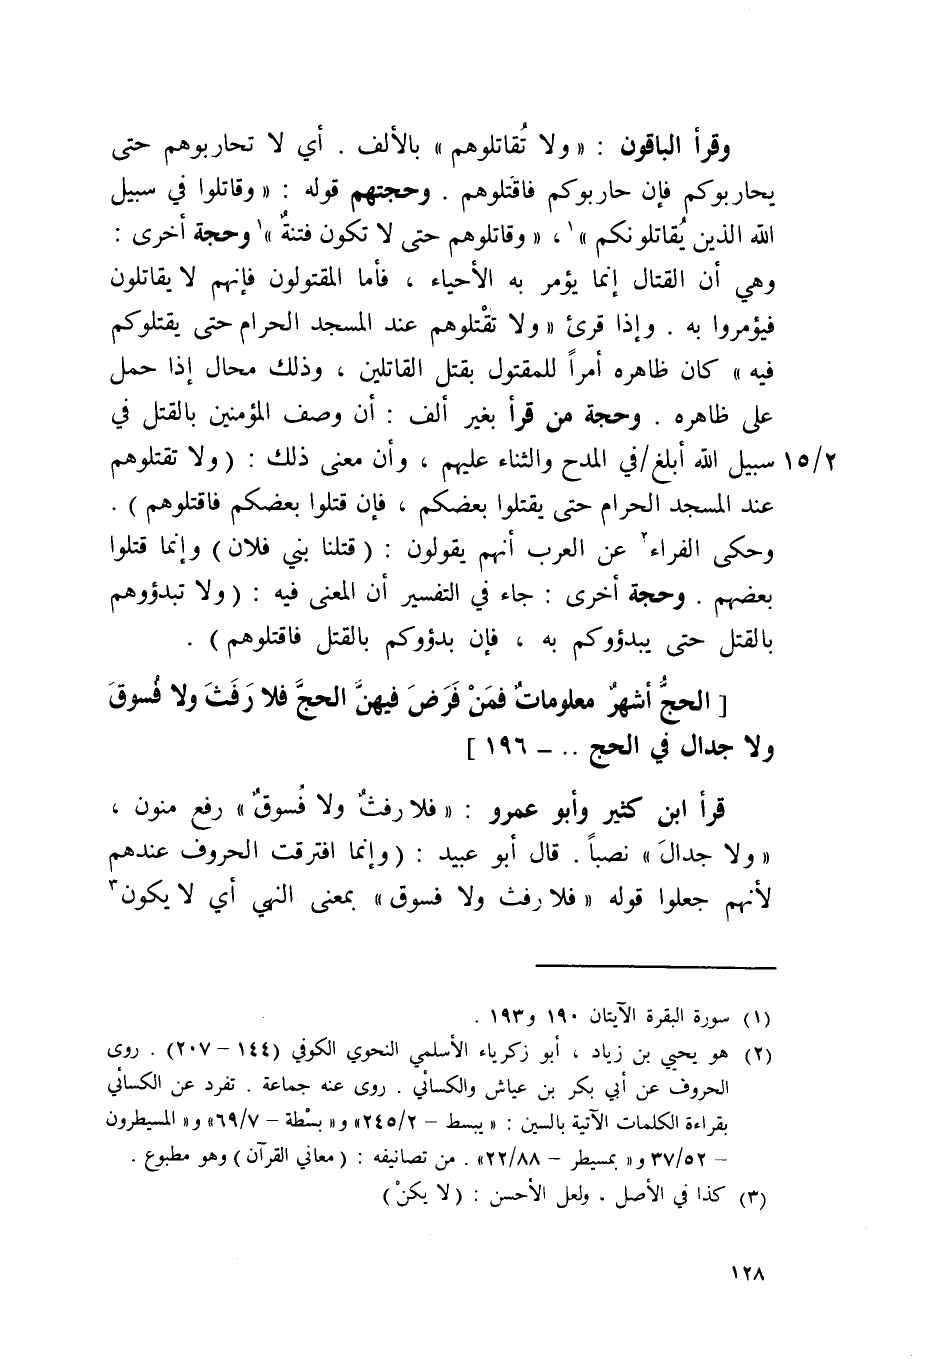 وقرأ الباقون : « ولا تُقاتلوهم » بالألف . أي لا تحاربوهم حتى
يحاربوكم فإن حاربوكم فاقتلوهم . وحجتهم قوله : « وقاتلوا في سبيل
الله الذين يُقاتلونكم »١ ، « وقاتلوهم حتى لا تكون فتنةٌ »١ وحجة أخرى :
وهي أن القتال إنما يؤمر به الأحياء ، فأما المقتولون فإنهم لا يقاتلون
فيؤمروا به . وإذا قرئ « ولا تقْتلوهم عند المسجد الحرام حتى يقتلوكم
فيه » كان ظاهره أمراً للمقتول بقتل القاتلين ، وذلك محال إذا حمل
على ظاهره . وحجة من قرأ بغير ألف : أن وصف المؤمنين بالقتل في
١٥/٢ سبيل الله أبلغ/في المدح والثناء عليهم ، وأن معنى ذلك : ( ولا تقتلوهم
عند المسجد الحرام حتى يقتلوا بعضكم ، فإن قتلوا بعضكم فاقتلوهم ) .
وحكى الفراء٢ عن العرب أنهم يقولون : ( قتلنا بني فلان ) وإنما قتلوا
بعضهم . وحجة أخرى : جاء في التفسير أن المعنى فيه : ( ولا تبدؤوهم
بالقتل حتى يبدؤوكم به ، فإن بدؤوكم بالقتل فاقتلوهم ) .
[ الحجُّ أشهرٌ معلوماتٌ فمَنْ فَرَضَ فيهنَّ الحجَّ فلا رَفَثَ ولا فُسوقَ
ولا جدال في الحج .. – ١٩٦ ]
قرأ ابن كثير وأبو عمرو : « فلا رفثٌ ولا فُسوقٌ » رفع منون ،
« ولا جدالَ » نصباً . قال أبو عبيد : ( وإنما افترقت الحروف عندهم
لأنهم جعلوا قوله « فلا رفث ولا فسوق » بمعنى النهي أي لا يكون٣
(١) سورة البقرة الآيتان ١٩٠ و١٩٣ .
(٢) هو يحيي بن زياد ، أبو زكرياء الأسلمي النحوي الكوفي (١٤٤ – ٢٠٧) . روى
الحروف عن أبي بكر بن عياش والكسائي . روى عنه جماعة . تفرد عن الكسائي
بقراءة الكلمات الآتية بالسين : « يبسط – ٢٤٥/٢» و« بسْطة – ٦٩/٧» و« المسيطرون
– ٣٧/٥٢ و« بمسيطر – ٢٢/٨٨» . من تصانيفه : ( معاني القرآن ) وهو مطبوع .
(٣) كذا في الأصل . ولعل الأحسن : ( لا يكنْ )
١٢٨